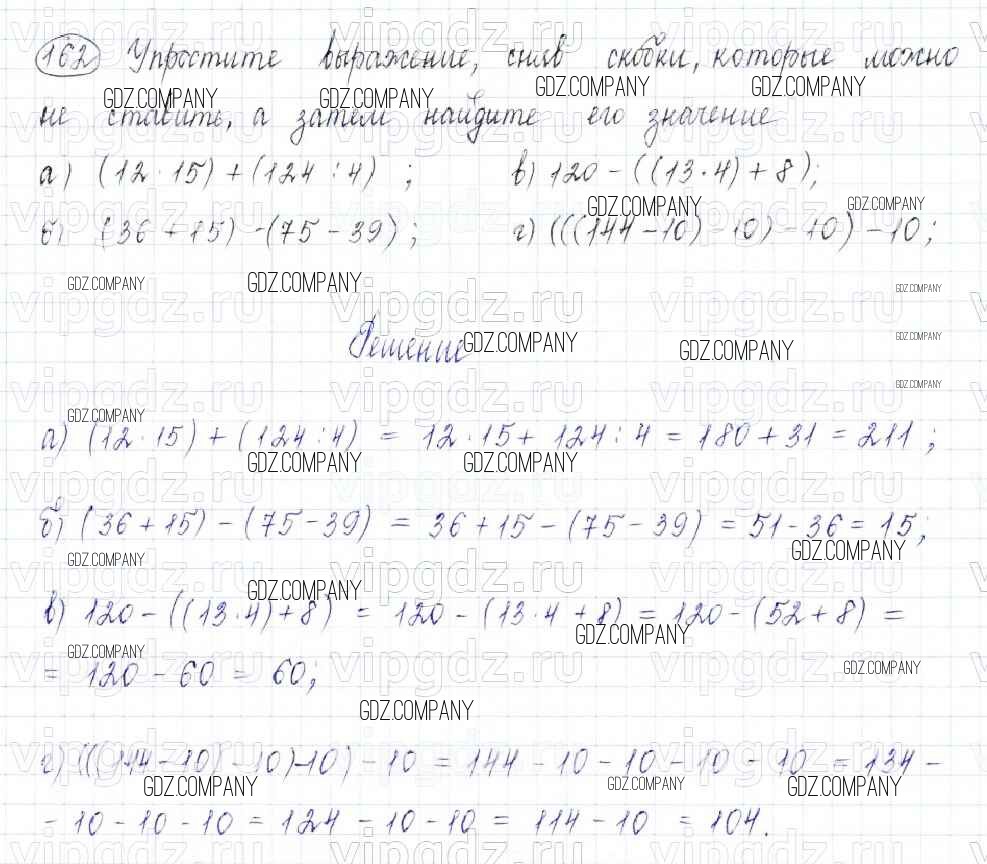 162 Упростите выражение, сняв скобки, которые можно
не ставить, а затем найдите его значение
а) (12·15)+(124:4) ; в) 120-((13·4)+8);
б) (36+15)-(75-39); г) (((144-10)-10)-10)-10;
Решение
а) (12·15)+(124:4) = 12·15+124:4 = 180+31 = 211;
б) (36+15)-(75-39) = 36+15-(75-39) = 51-36 = 15;
в) 120-((13·4)+8) = 120-(13·4+8) = 120-(52+8) =
= 120-60 = 60;
г) (((144-10)-10)-10)-10 = 144-10-10-10-10 = 134-
-10-10-10 = 124-10-10 = 114-10 = 104.